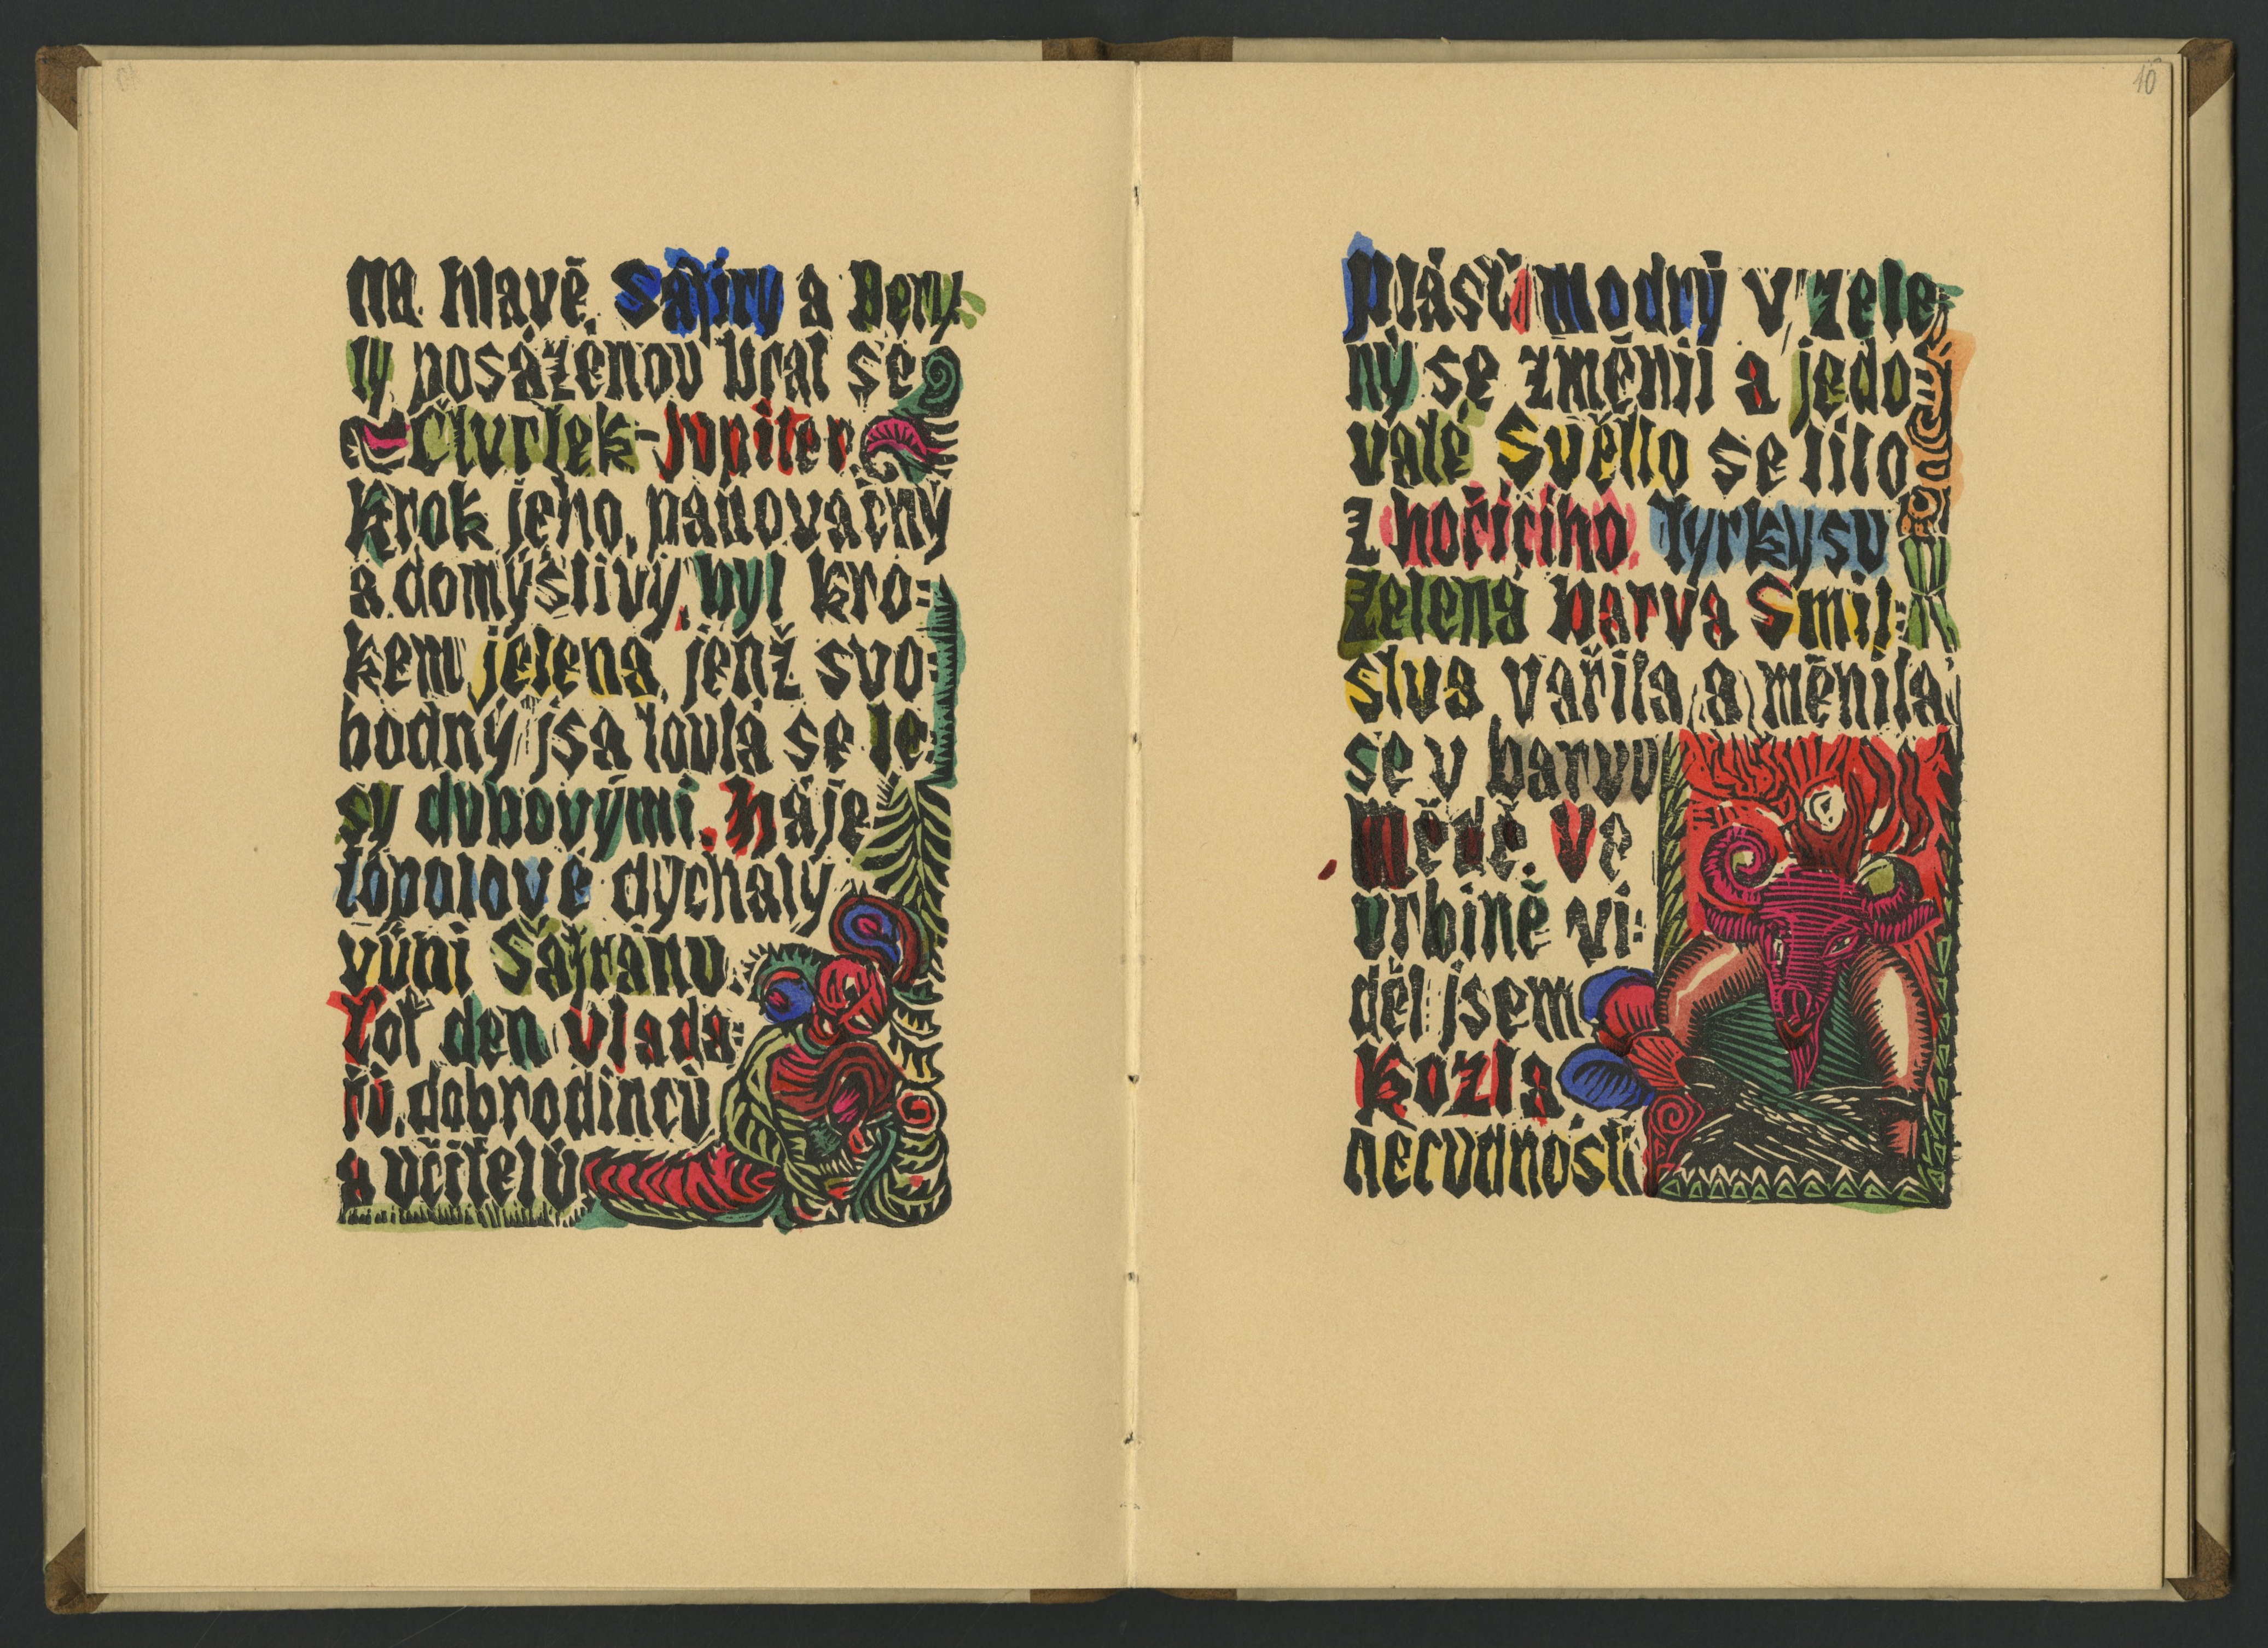 Na hlavě, Safíry a Bery-
ly posázenou bral se
Čtvrtek-Jupiter.
Krok jeho, panovačný
a domýšlivý, byl kro=
kem jelena, jenž svo=
bodný jsa toulá se le=
sy dubovými. Háje
topolové dýchaly
vůni Šafránu.
Toť den vlada=
řů, dobrodinců
a učitelů
10
Plášť modrý v zele
ný se změnil a jedo=
vaté Světlo se lilo
z hořícího Tyrkysu
Zelená barva Smil=
stva vařila a měnila
se v barvu
mědě. Ve
vrbině vi=
děl jsem
kozla
necudnosti